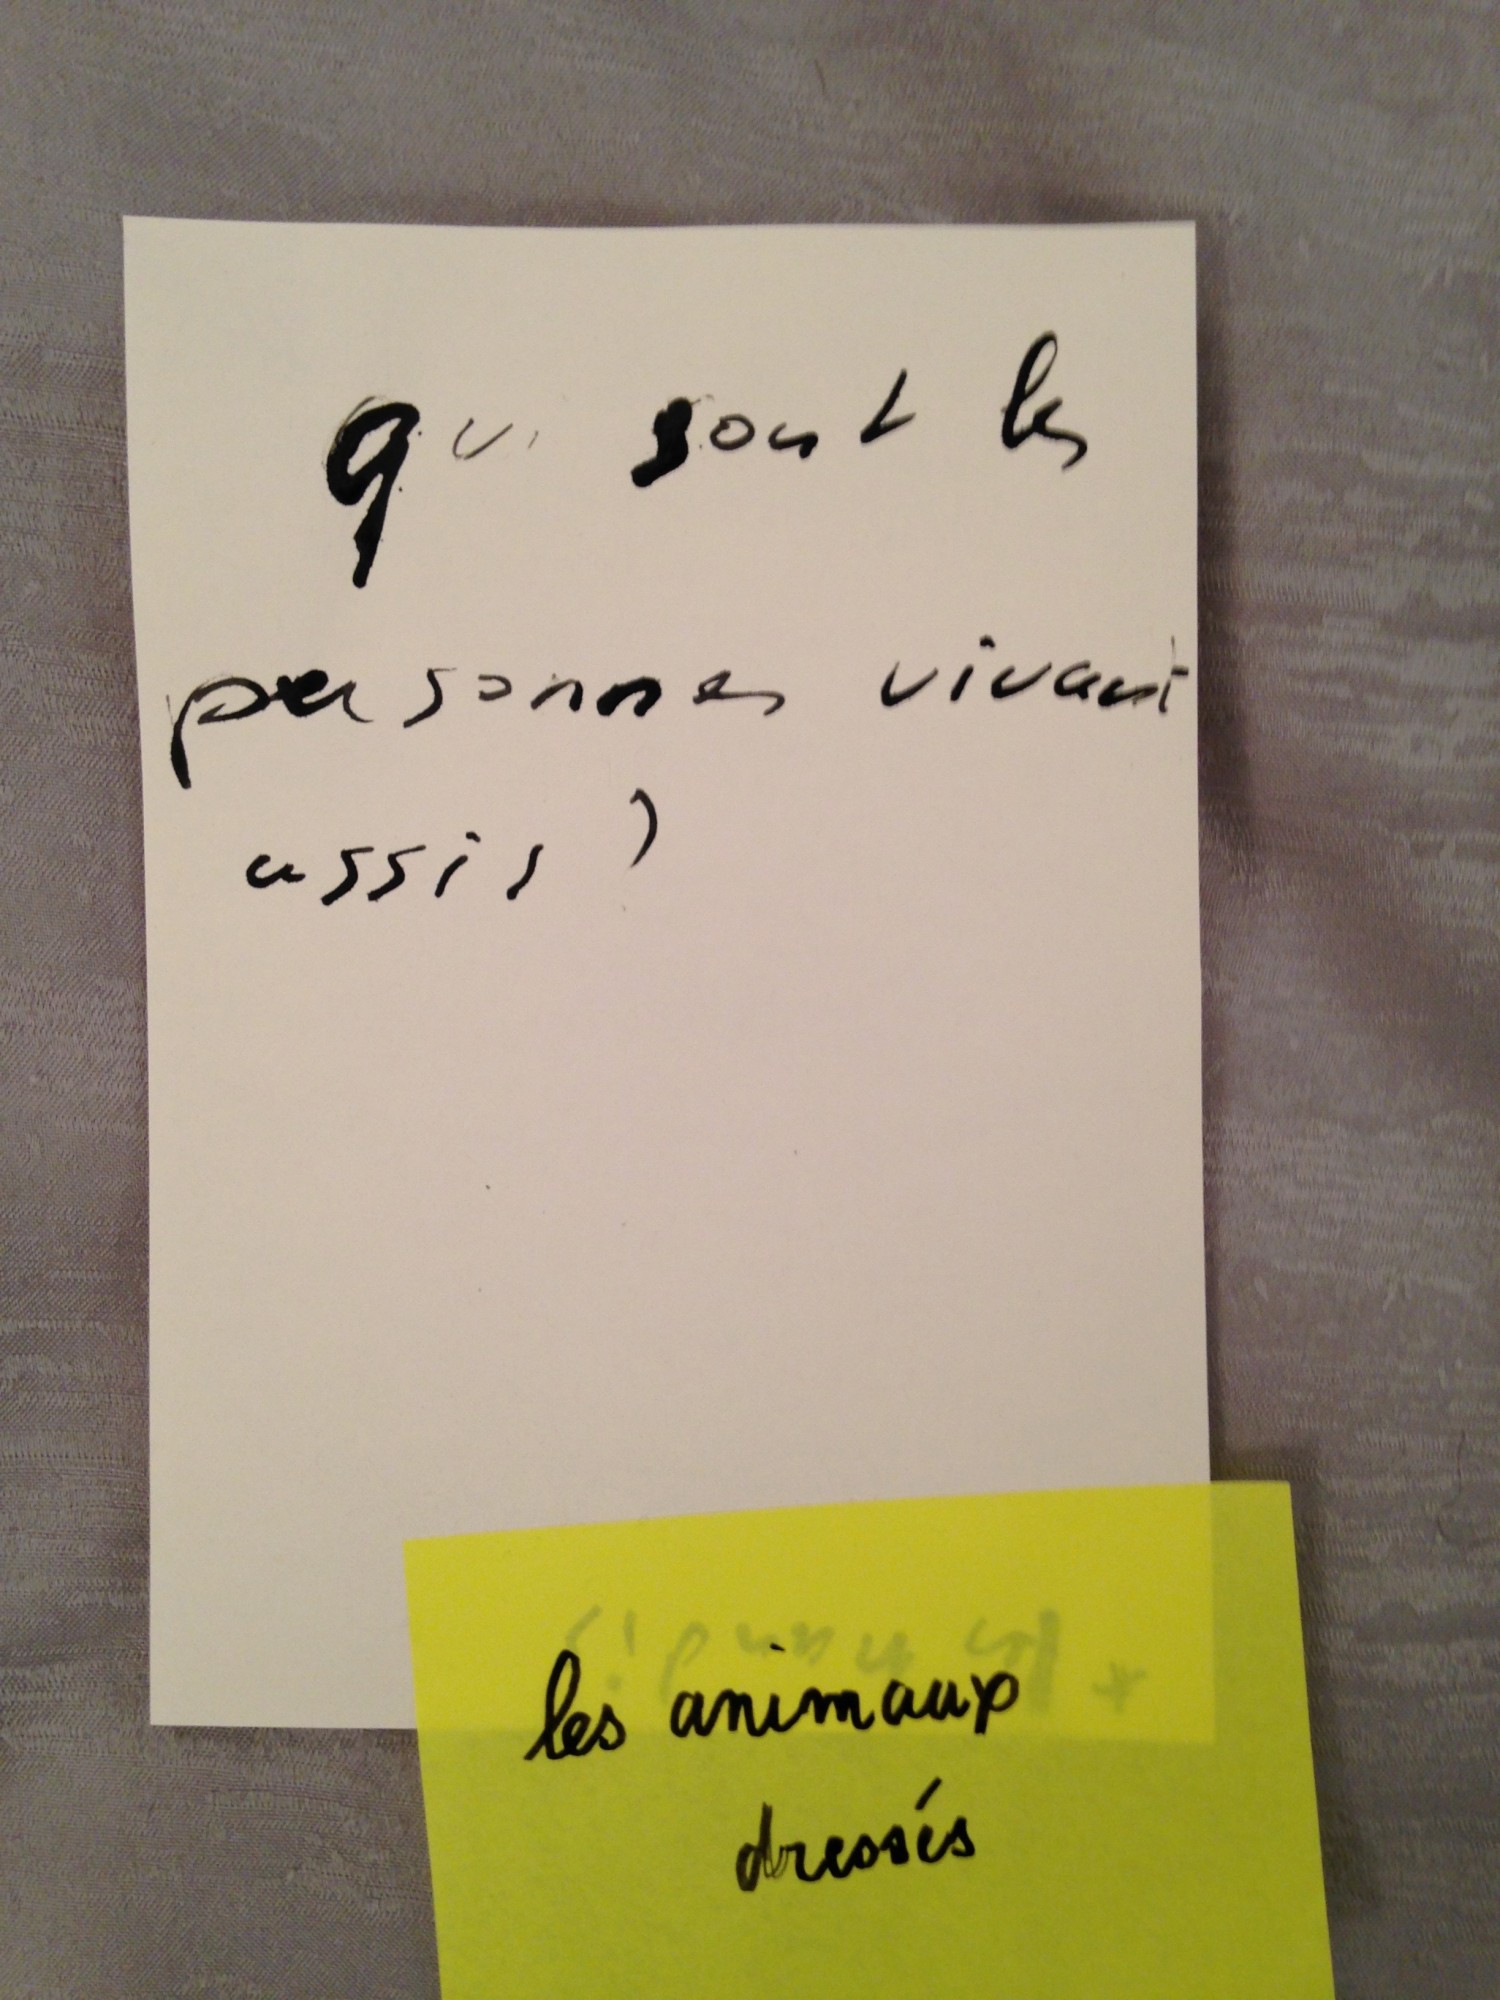 qui sont les
personnes vivant
assis ?
les animaux
dressés